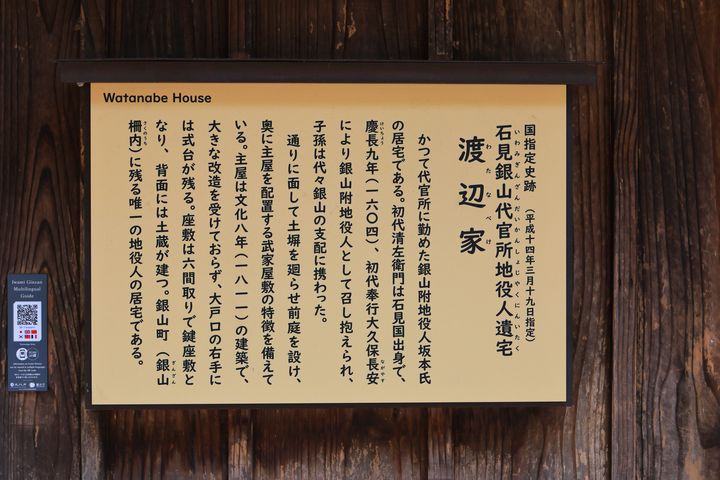 Watanabe House
国指定史跡 (平成十四年三月十九日指定)
石見銀山代官所地役人遺宅
いわみぎんざんだいかんしょじやくにんいたく
渡辺家
わたなべけ
かつて代官所に勤めた銀山附地役人坂本氏
の居宅である。初代清左衛門は石見国出身で、
慶長九年(一六〇四)、初代奉行大久保長安
けいちょう
ながやす
により銀山附地役人として召し抱えられ、
子孫は代々銀山の支配に携わった。
通りに面して土塀を廻らせ前庭を設け、
奥に主屋を配置する武家屋敷の特徴を備えて
いる。主屋は文化八年(一八一一)の建築で、
大きな改造を受けておらず、大戸口の右手に
は式台が残る。座敷は六間取りで鍵座敷と
なり、背面には土蔵が建つ。銀山町(銀山
ぎんざん
柵内)に残る唯一の地役人の居宅である。
さくのうち
Iwami Ginzan
Multilingual
Guide